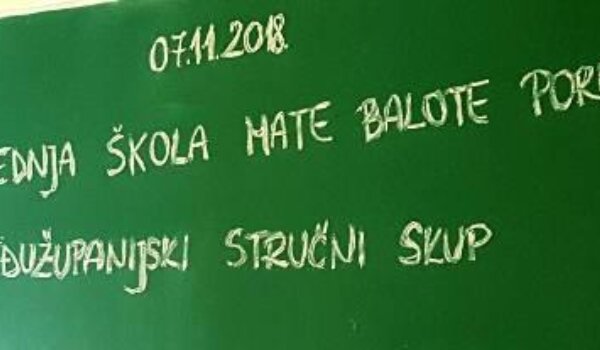 07.11.2018.
EDNJA ŠKOLA MATE BALOTE PORE
ĐUŽUPANIJSKI STRUČNI SKUP